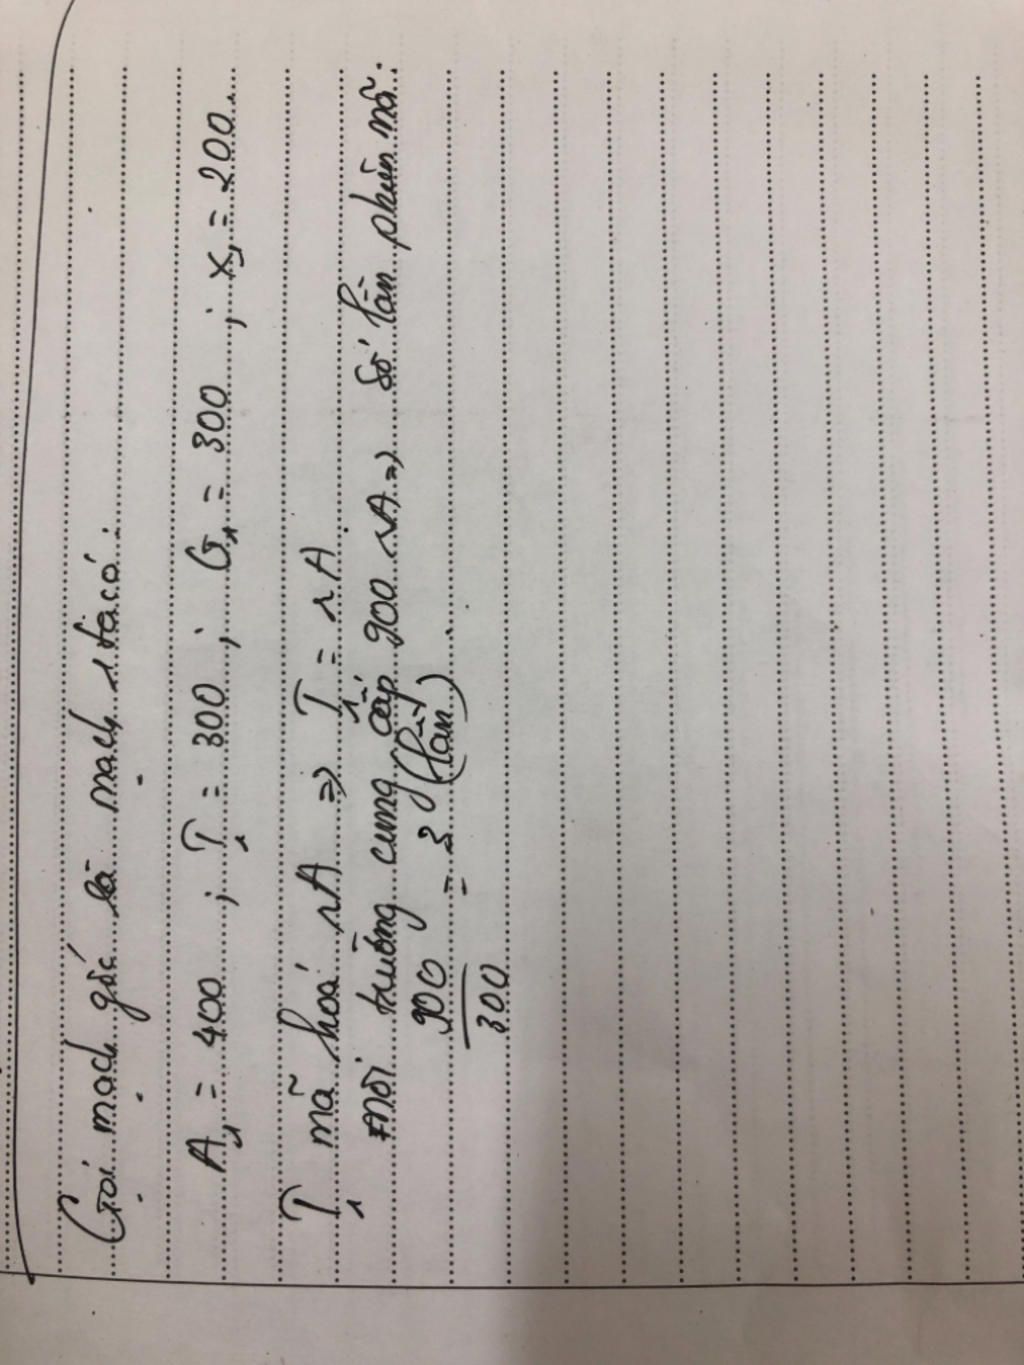 Gọi mạch gốc là mạch 1 ta có:
A₁ = 400 ; T₁ = 300 ; G₁ = 300 ; X₁ = 200
T₁ mã hoá rA => T₁ = rA
môi trường cung cấp 900 rA => số lần phiên mã:
900/300 = 3 (lần)